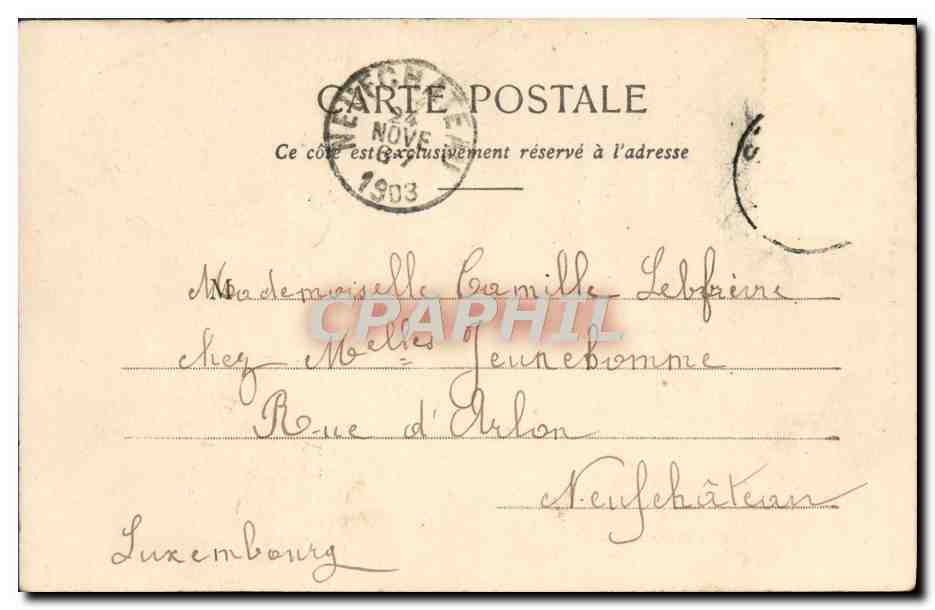 CARTE POSTALE
NEUFCHÂTEAU
24
NOVE
1903
Ce côté est exclusivement réservé à l'adresse
Mademoiselle Camille Lebfrèvre
CPAPHIL
chez Melles Jeunehomme
Rue d'Arlon
Neufchâteau
Luxembourg